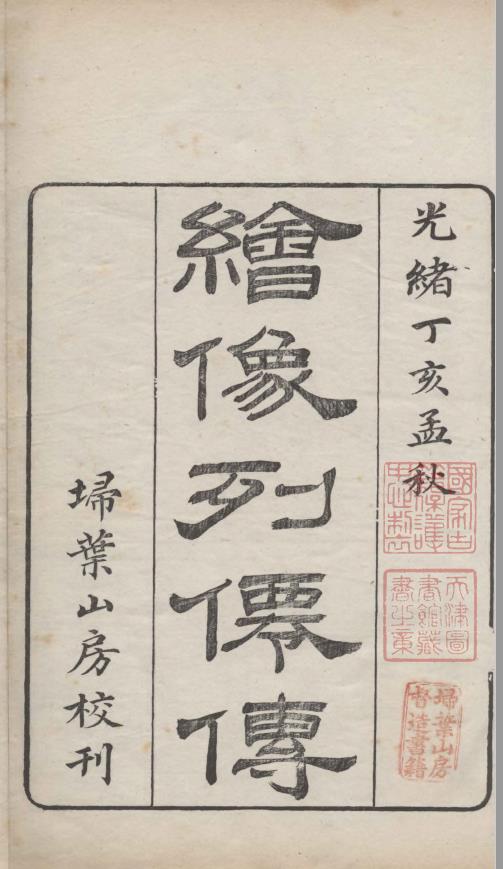 光緒丁亥孟秋
繪像列僊傳
埽葉山房校刊
天津圖
書館藏
書之章
埽葉山房
督造書籍